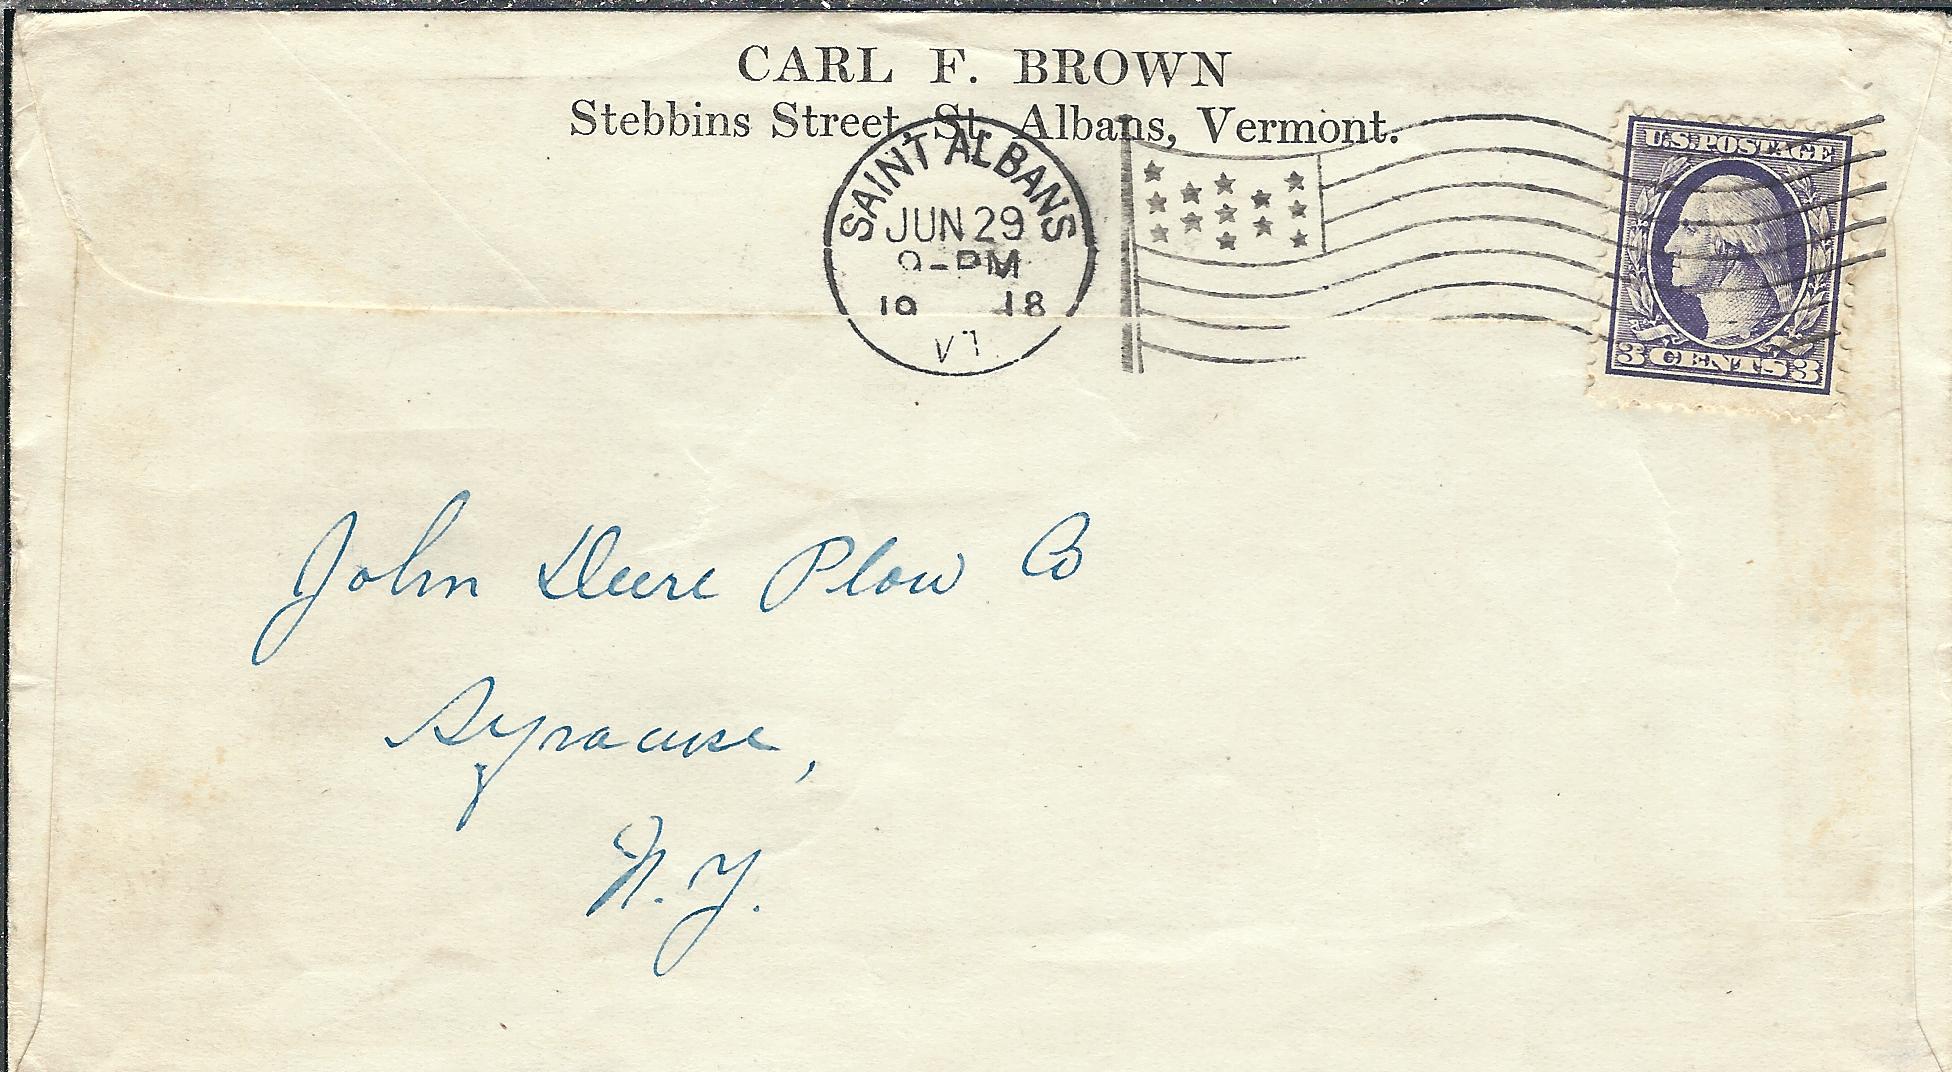 CARL F. BROWN
Stebbins Street, St. Albans, Vermont.
SAINT ALBANS
JUN 29
9-PM
19 18
VT.
U.S. POSTAGE
3 CENTS 3
John Deere Plow Co
Syracuse,
N.Y.